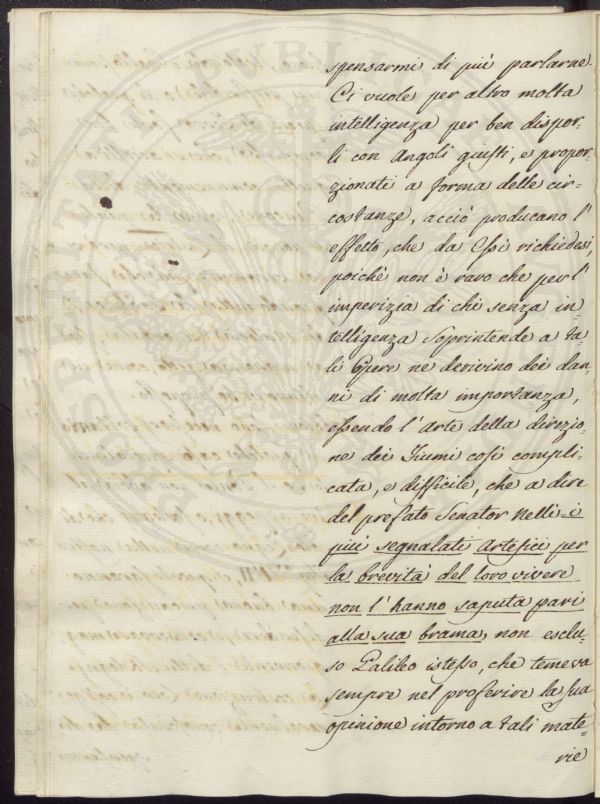 spensarmi di più parlarne.
Ci vuole per altro molta
intelligenza per ben dispor-
li con angoli giusti, e propor-
zionati a forma delle cir-
costanze, acciò producano l'
effetto, che da Essi richiedesi,
poichè non è raro che per l'
imperizia di chi senza in-
telligenza soprintende a ta-
li Opere ne derivino dei dan-
ni di molta importanza,
essendo l'arte della direzio-
ne dei Fiumi così compli-
cata, e difficile, che a dire
del prefato Senator Nelli i
più segnalati Artefici per
la brevità del loro vivere
non l'hanno saputa pari
alla sua brama, non esclu-
so Galileo istesso, che temeva
sempre nel proferire la sua
opinione intorno a tali mate-
rie